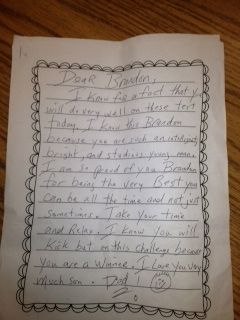 Dear Brandon,
I know for a fact that you
will do very well on these test
today. I know this Brandon
because you are such an intelligent,
bright, and studious young man.
I am so proud of you Brandon
for being the very Best you
can be all the time and not just
sometimes. Take your time
and Relax. I know you will
Kick but on this challenge because
you are a winner. I Love you very
much son. Dad